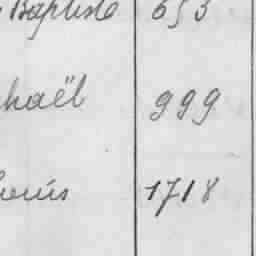 Baptiste 653
haël 999
1718